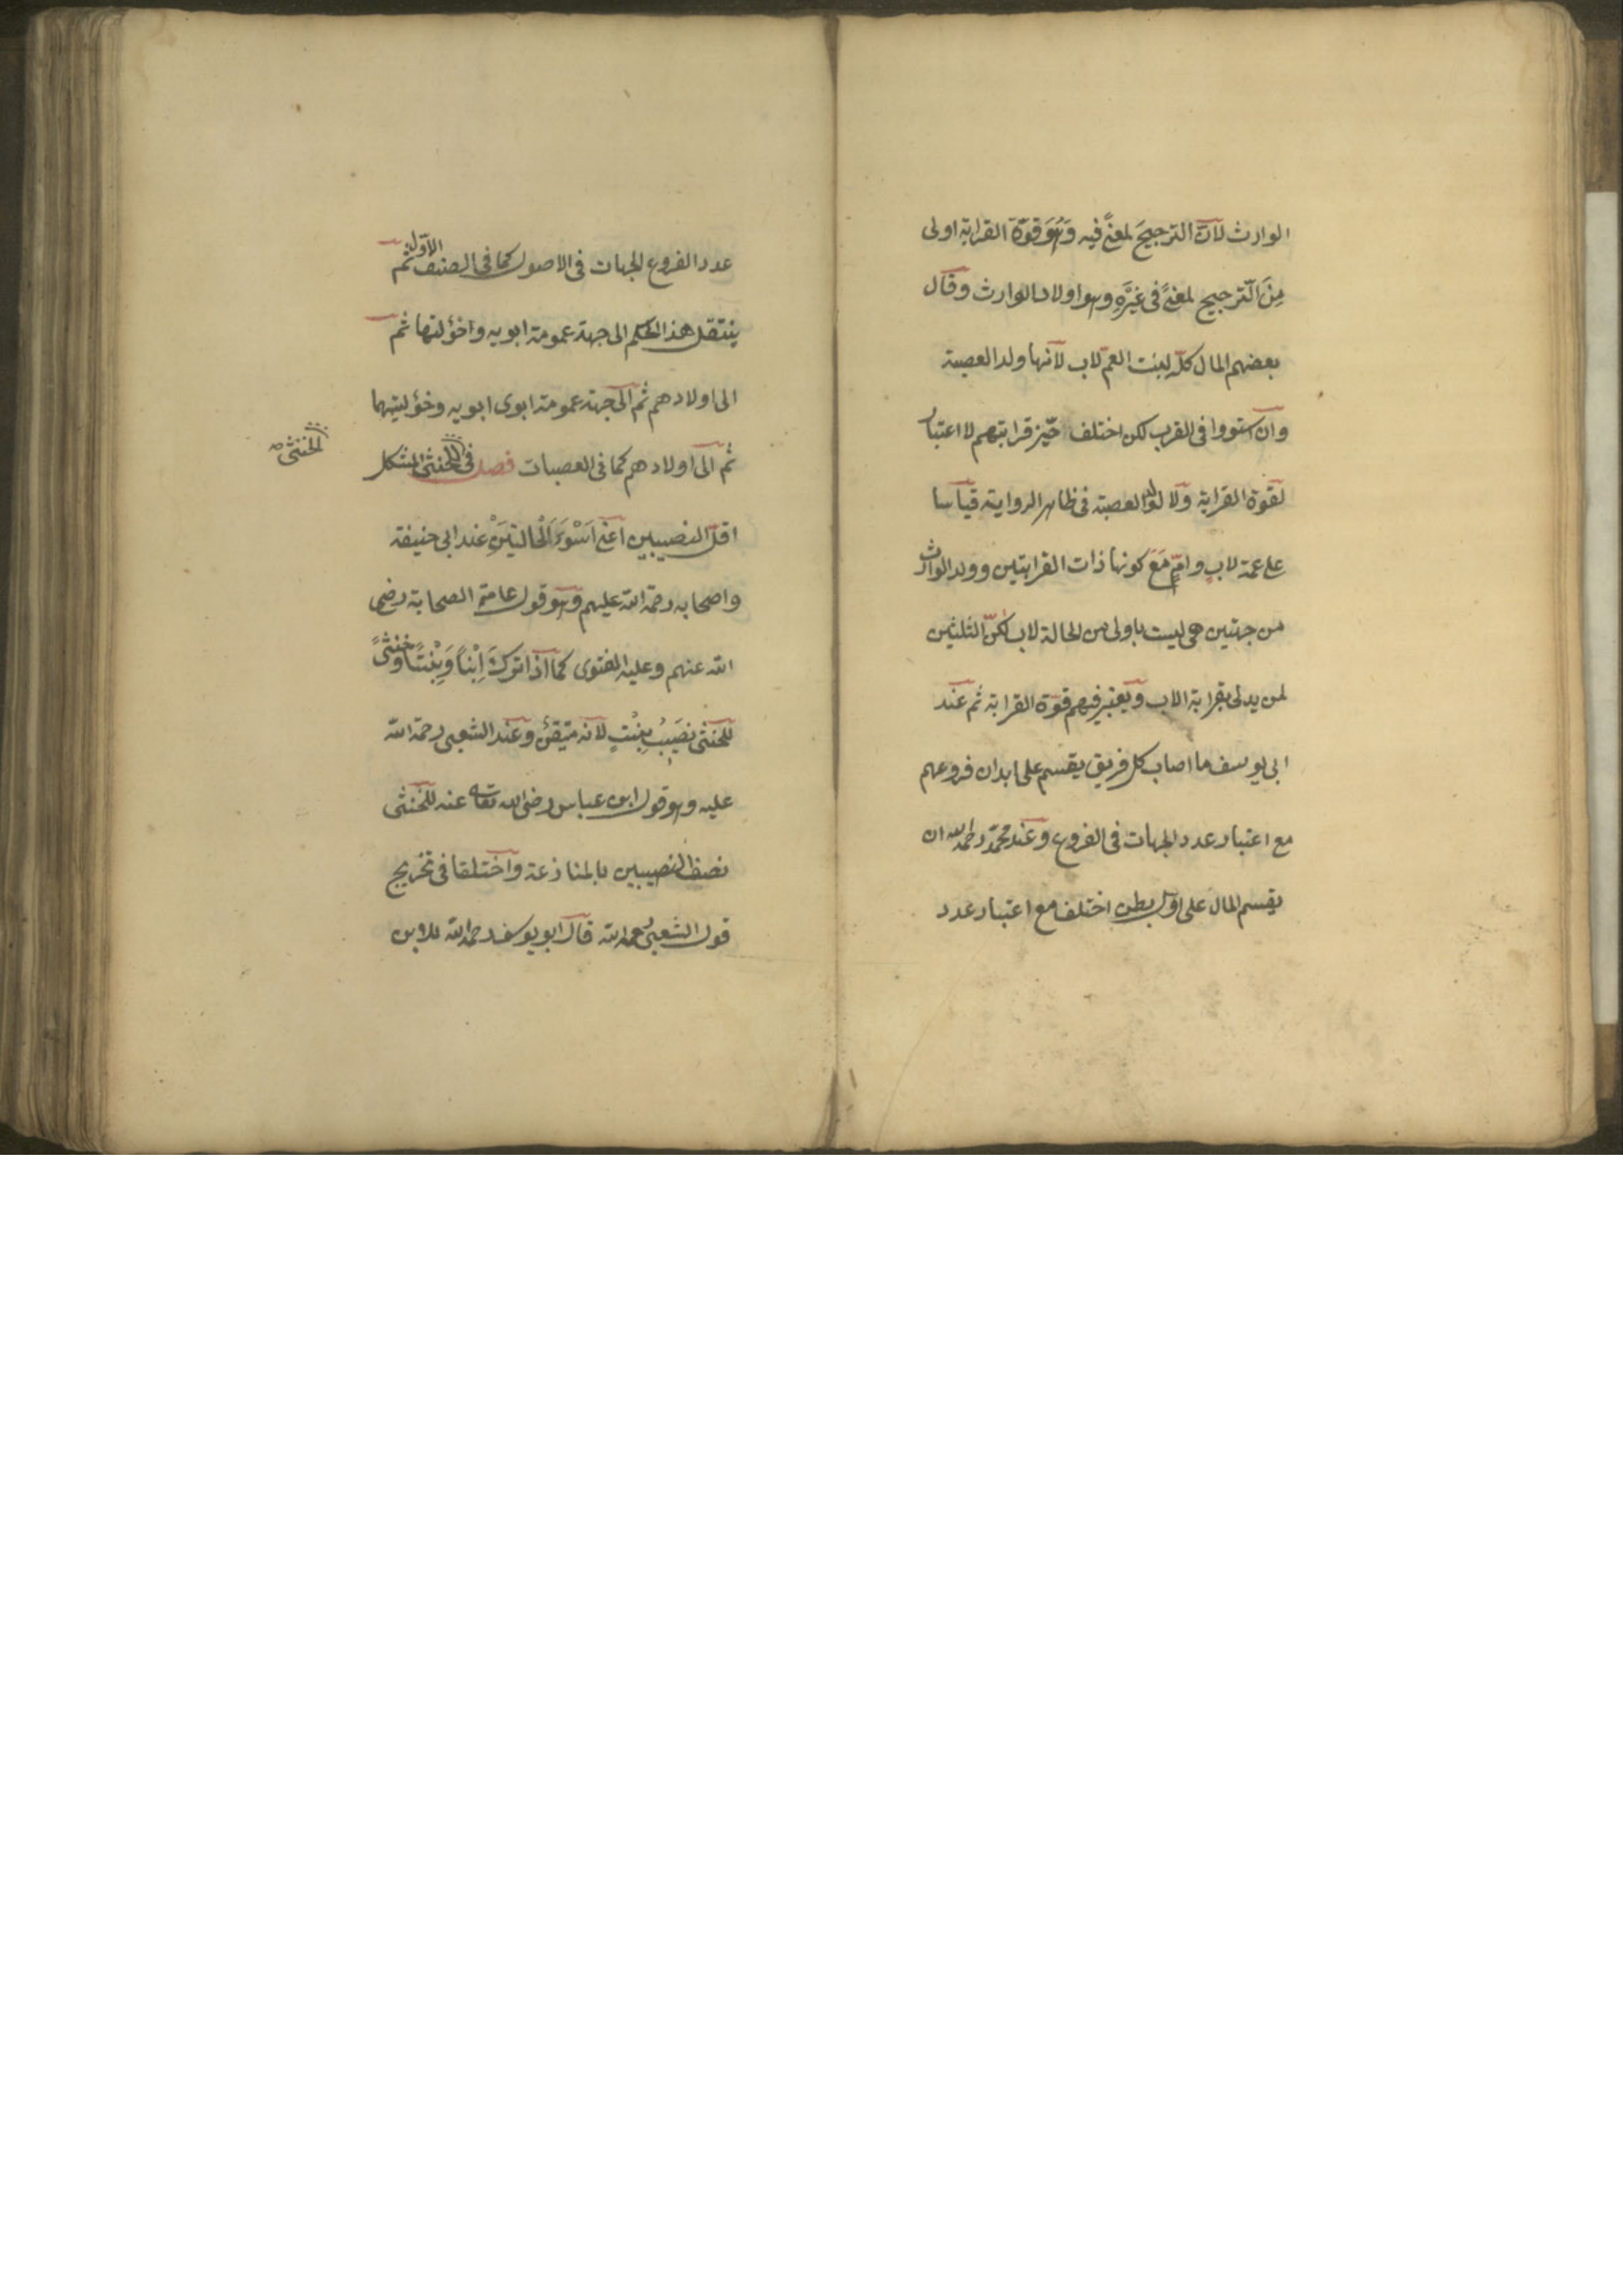 الوارث لان الترجيح لمعنًى فيه وَهُوَ قوّة القرابة اولى
مِنَ الترجيح لمعنًى فى غَيْرِهِ وهو اولاد الوارث وقال
بعضهم المال كلّه لبنت العمّ لاب لانها ولد العصبة
وان استووا فى القرب لكن اختلف حيّز قرابتهم لا اعتبار
لقوة القرابة ولا لولد العصبة فى ظاهر الرواية قياسا
على عمة لابٍ وامٍّ مَعَ كونها ذات القرابتين وولد الوارث
من جهتين هى ليست باولى من الخالة لاب لكنّ الثلثين
لمن يدلى بقرابة الاب ويعتبر فيهم قوّة القرابة ثم عند
ابى يوسف ما اصاب كل فريق يقسم على ابدان فروعهم
مع اعتبار عدد الجهات فى الفروع وعند محمّد رحمه الله ان
يقسم المال على اوّل بطن اختلف مع اعتبار عدد
عدد الفروع الجهات فى الاصول كما فى الصنف الاوّل ثم
ينتقل هذ الحكم الى جهة عمومة ابويه واخؤلتها ثم
الى اولادهم ثم الى جهة عمومة ابوى ابويه وخؤلتيهما
ثم الى اولادهم كما فى العصبات فصل فى الخنثى للخنثى المشكل
الخنثى
اقلّ النصيبين اعنى اَسْوَءَ الْحالتيَنِْ عند ابى حنيفة
واصحابه رحمة الله عليهم وهو قول عامّة الصحابة رضى
الله عنهم وعليه الفتوى كما اذا ترك اِبْناً وَبِنْتًا وخنثىً
للخنثى نصَيبُ بِنْتٍ لانه متيقن وعند الشعبى رحمة الله
عليه وهو قول ابن عباس رضى الله تعالى عنه للخنثى
نصف النصيبين بالمنازعة واختلفا فى تخريج
قول الشعبى رحمه الله قال ابو يوسف رحمه الله للابن